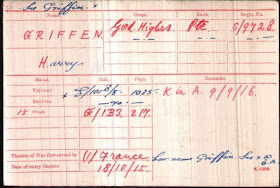 See Griffin. x
Name. Corps. Rank. Regtl. No.
GRIFFEN. Gord. Highrs. Pte S/9728.
Harry.
Medal. Roll. Page. Remarks.
VICTORY x E/101B/8 1025. K in A. 9/9/16.
BRITISH —do—
15 STAR E/1B3. 217.
Theatre of War first served in (1) France born name Griffin. See x
Date of entry therein 18/10/15. K. 1380.